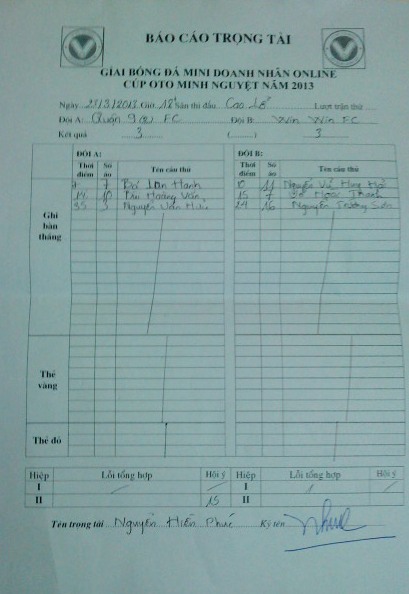 BÁO CÁO TRỌNG TÀI
GIẢI BÓNG ĐÁ MINI DOANH NHÂN ONLINE
CÚP OTO MINH NGUYỆT NĂM 2013
Ngày 23/3/2013 Giờ 18h sân thi đấu Cao Lỗ Lượt trận thứ
Đội A: Quán 9 FC Đội B: Win Win FC
Kết quả 3 ( ) 3
ĐỘI A: ĐỘI B:
Thời điểm Số áo Tên cầu thủ Thời điểm Số áo Tên cầu thủ
Ghi bàn thắng
7 Hạnh 10 11 Nguyễn Vũ
14 10 Hoàng Văn 15 7 Ngọc Thanh
35 3 Nguyễn Văn 24 16 Nguyễn Trường Sơn
Thẻ vàng
Thẻ đỏ
Hiệp Lỗi tổng hợp Hội ý Hiệp Lỗi tổng hợp Hội ý
I I
II 15 II
Tên trọng tài Nguyễn Hiền Phúc Ký tên